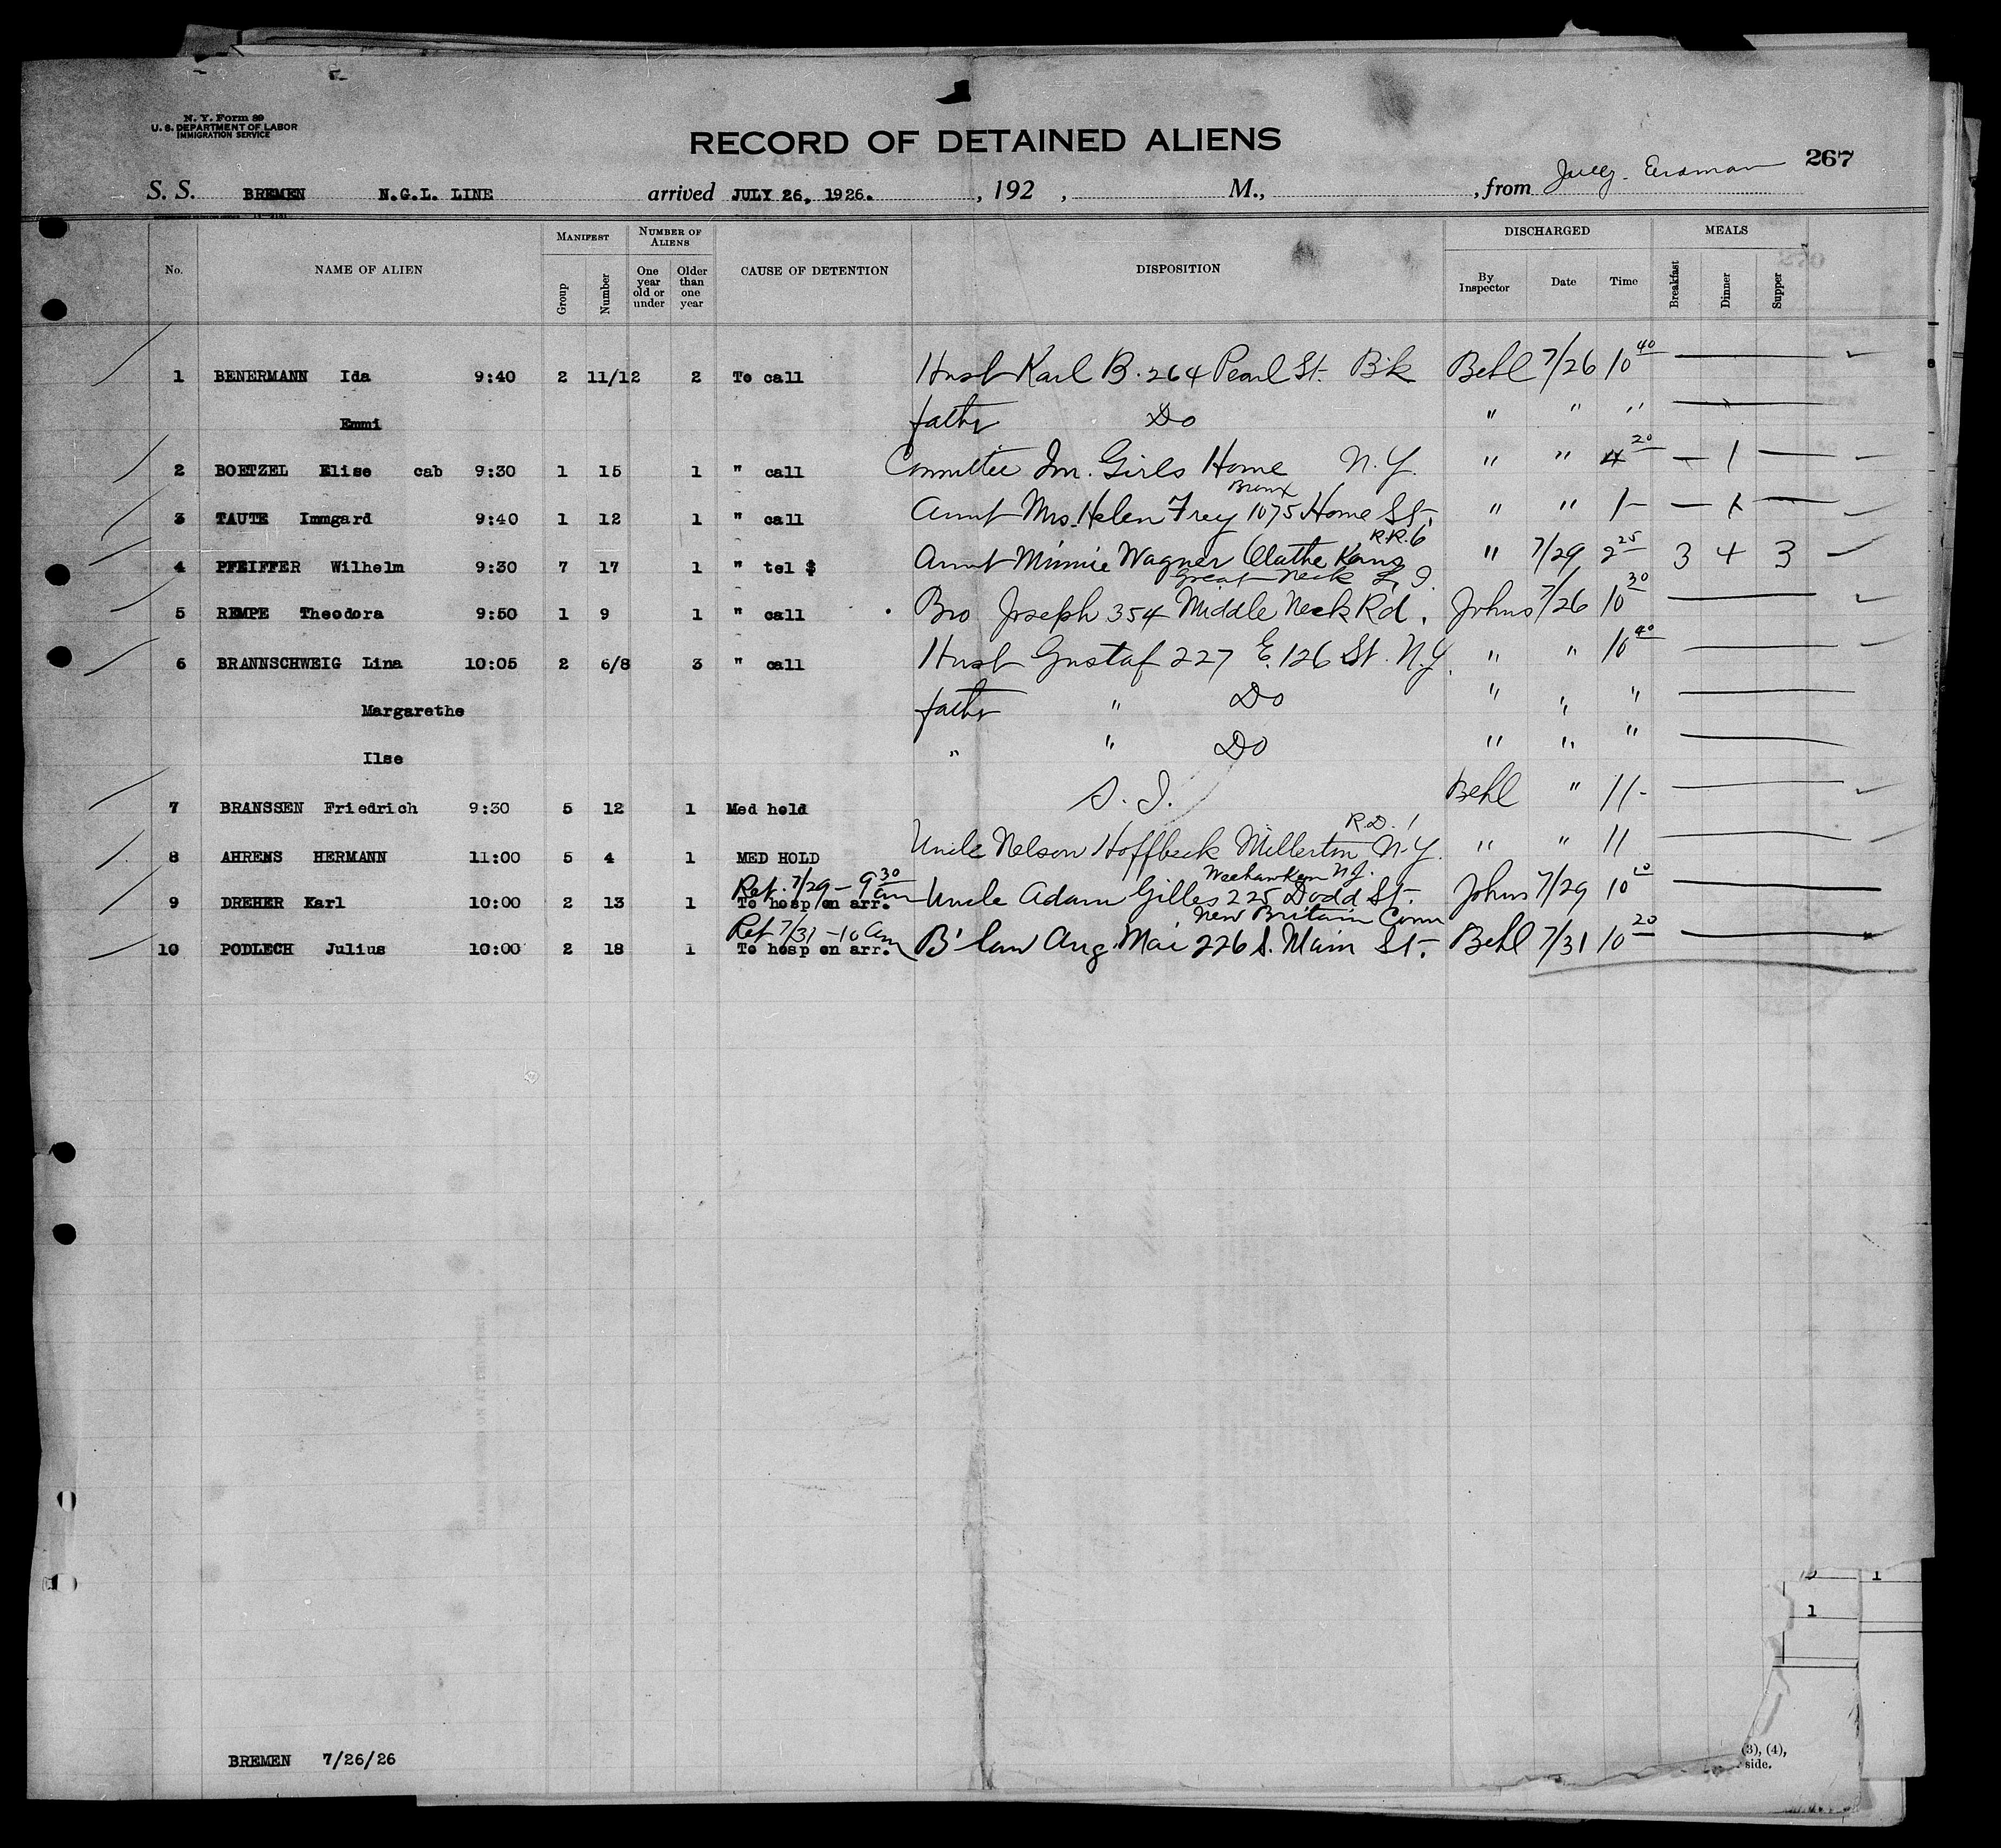 N. Y. Form 89
U. S. DEPARTMENT OF LABOR
IMMIGRATION SERVICE
RECORD OF DETAINED ALIENS
267
S. S. BREMEN N.G.L. LINE arrived JULY 26, 1926. , 192 , M., , from
No. NAME OF ALIEN MANIFEST Group Number NUMBER OF ALIENS One year old or under Older than one year CAUSE OF DETENTION DISPOSITION DISCHARGED By Inspector Date Time MEALS Breakfast Dinner Supper
1 BENERMANN Ida 9:40 2 11/12 2 To call Husb Karl B. 264 Pearl St. Bk Behl 7/26 10 40
Emmi father Do " " "
2 BOETZEL Elise cab 9:30 1 15 1 " call Committee Im. Girls Home N.Y. " " 4 20 — 1 —
3 TAUTE Immgard 9:40 1 12 1 " call Aunt Mrs. Helen Frey 1075 Home St. Bronx " " 1 — — 1 —
4 PFEIFFER Wilhelm 9:30 7 17 1 " tel $ Aunt Minnie Wagner Olathe Kans R.R. 6 " 7/29 2 25 3 4 3
5 REMPE Theodora 9:50 1 9 1 " call Bro Joseph 354 Middle Neck Rd. Great Neck L. I. Johns 7/26 10 30
6 BRANNSCHWEIG Lina 10:05 2 6/8 3 " call Husb Gustaf 227 E. 126 St. N.Y. " " 10 40
Margarethe father " Do " " "
Ilse " " Do " " "
7 BRANSSEN Friedrich 9:30 5 12 1 Med held S. I. Behl " 11 -
8 AHRENS HERMANN 11:00 5 4 1 MED HOLD Uncle Nelson Hoffbeck Millerton N.Y. R.D. 1 " " 11
Ret. 7/29 - 9 30 am
9 DREHER Karl 10:00 2 13 1 To hosp on arr. Uncle Adam Gilles 225 Dodd St. Weehawken N.J. Johns 7/29 10 10
Ret 7/31 - 10 am
10 PODLECH Julius 10:00 2 18 1 To hosp on arr. B'law Aug. Mai 226 S. Main St. New Britain Conn Behl 7/31 10 20
1
1
(3), (4),
side.
BREMEN 7/26/26